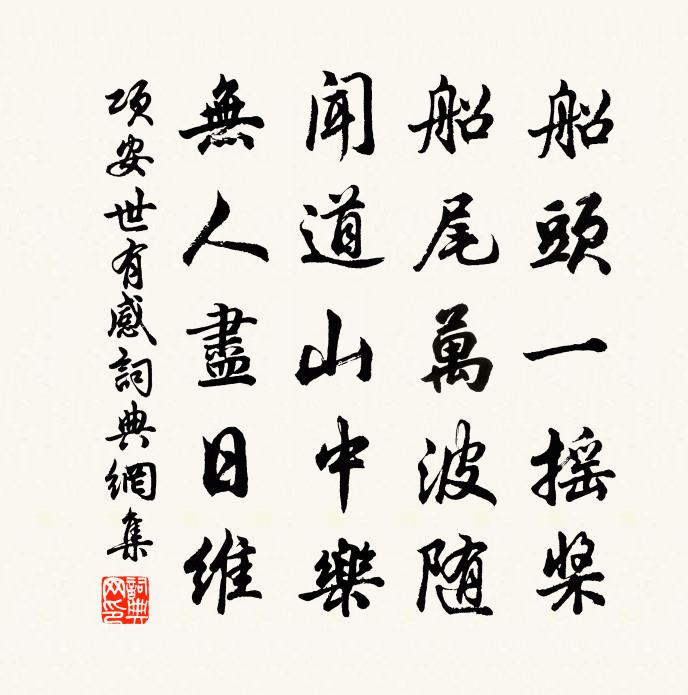 船頭一摇槳
船尾萬波随
聞道山中樂
無人盡日維
項安世有感詞典網集
詞典網印